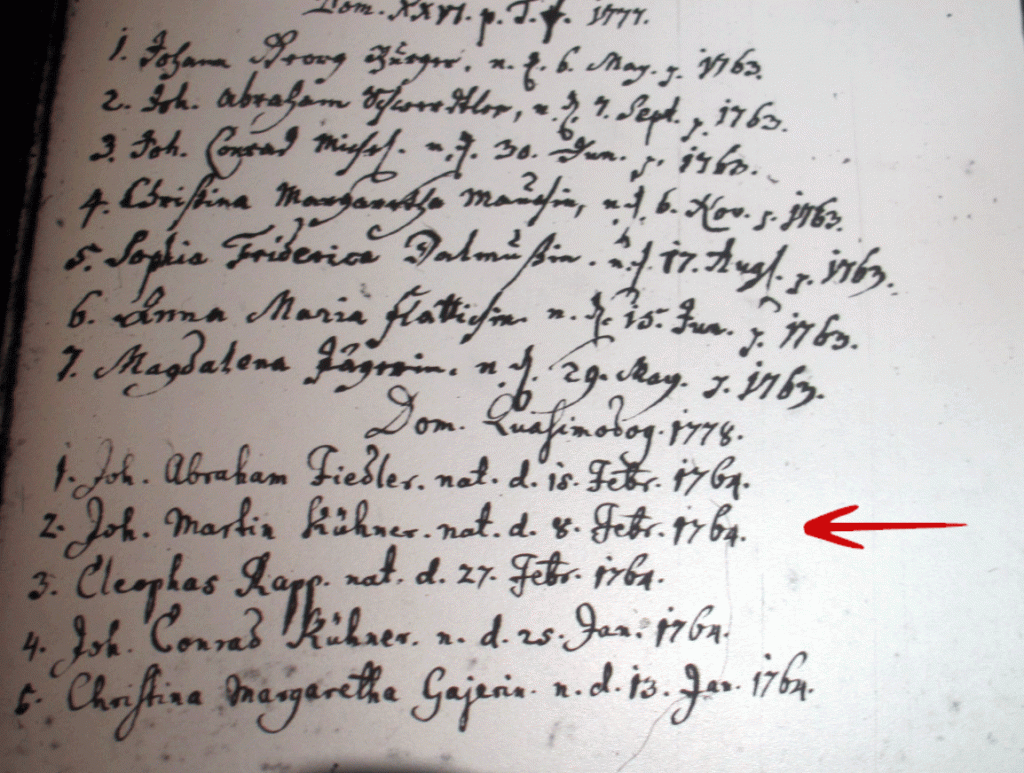 Dom. XXVI. p. T. 1777.
1. Johann Georg Bürger. n. d. 6. May. 1763.
2. Joh. Abraham Schwerdtler, n. d. 7. Sept. 1763.
3. Joh. Conrad Michel. n. d. 30. Jun. 1763.
4. Christina Margaretha n. d. 6. Nov. 1763.
5. Sophia Friderica n. d. 17. Aug. 1763.
6. Anna Maria Flattichin n. d. 15. Jun. 1763.
7. Magdalena Jägerin. n. d. 29. May. 1763.
Dom. Quasimodog. 1778.
1. Joh. Abraham Fiedler. nat. d. 15. Febr. 1764.
2. Joh. Martin Kühner. nat. d. 8. Febr. 1764.
3. Cleophas Rapp. nat. d. 27. Febr. 1764.
4. Joh. Conrad Kühner. n. d. 25. Jan. 1764.
5. Christina Margaretha Gajerin. n. d. 13. Jan. 1764.